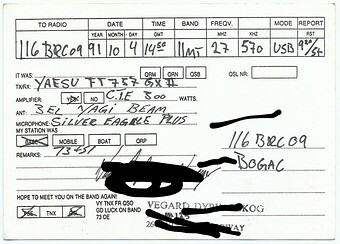 TO RADIO DATE TIME BAND FREQV. MODE REPORT
YEAR MONTH DAY GMT MHZ KHZ RST
116 BRC09 91 10 4 1450 11MT 27 570 USB
IT WAS: QRM QRN QSB QSL NR:
TX/RX: YAESU FT 757 GX II
AMPLIFIER: YES NO C.T.E 300 WATTS.
ANT: BEI YAGI BEAM
MICROPHONE: SILVER EAGLE PLUS
MY STATION WAS
BASE MOBILE BOAT ORP
116 BRC09
REMARKS: 73+51
BOGAC
HOPE TO MEET YOU ON THE BAND AGAIN!
PSE TNX VY TNX FR QSO
GD LUCK ON BAND
73 DE
VEGARD KOG